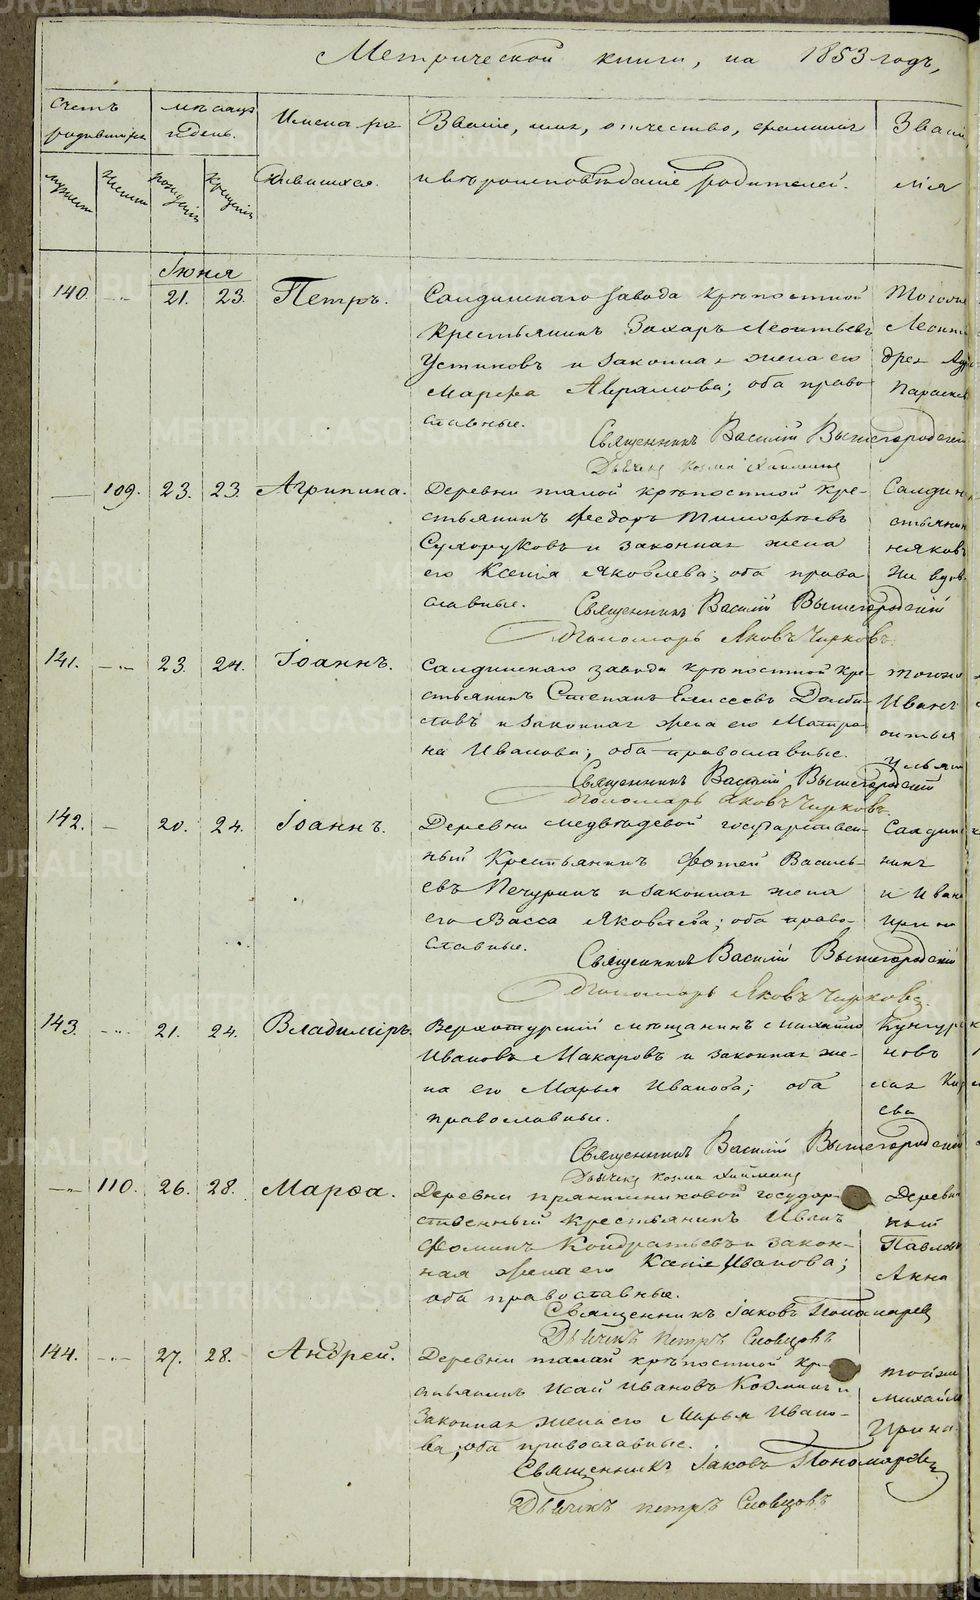 Метрической книги, на 1853 годъ,
Счетъ родившихся
мѣсяцъ и день.
Имена ро
дившихся.
Званіе, имя, отчество, фамилія
и вѣроисповѣданіе родителей.
Зван
имя
мужеск
женск
рожденія
крещенія
Іюня
140
21. 23.
Петръ.
Салдинскаго завода крѣпостной
крестьянинъ Захаръ Леонтьевъ
Устиновъ и законная жена его
Марѳа Аврамова; оба право
славные.
Священникъ Василій Вышегородскій
Дьячекъ Козма
109. 23. 23. Агрипина.
Деревни малой крѣпостной кре-
стьянинъ Ѳедоръ Тимоѳеевъ
Сухоруковъ и законная жена
его Ксенія Яковлева; оба право
славные.
Священникъ Василій Вышегородскій
Пономарь Яковъ Чирковъ.
141. 23. 24. Іоаннъ.
Салдинскаго завода крѣпостной кре-
стьянинъ Степанъ Елисеевъ Долби-
ловъ и законная жена его Матро-
на Иванова; оба православные.
Священникъ Василій Вышегородскій
Пономарь Яковъ Чирковъ.
142. 20. 24. Іоаннъ.
Деревни Медвѣдевой государствен-
ный крестьянинъ Фотей Василь-
евъ Печуринъ и законная жена
его Васса Яковлева; оба право-
славные.
Священникъ Василій Вышегородскій
Пономарь Яковъ Чирковъ.
143. 21. 24. Владиміръ.
Верхотурскій мѣщанинъ Михайло
Ивановъ Макаровъ и законная же-
на его Марья Иванова; оба
православные.
Священникъ Василій Вышегородскій
Дьячекъ Козма
110. 26. 28. Марѳа.
Деревни Прянишниковой государ-
ственный крестьянинъ Иванъ
Фоминъ Кондратьевъ и закон-
ная жена его Ксенія Иванова;
оба православные.
Священникъ Іаковъ Пономаревъ
Дьячекъ Петръ Словцовъ
144. 27. 28. Андрей.
Деревни малой крѣпостной кре
стьянинъ Исай Ивановъ Козминъ и
законная жена его Марья Ивано-
ва; оба православные.
Священникъ Іаковъ Пономаревъ
Дьячекъ Петръ Словцовъ
METRIKI.GASO-URAL.RU